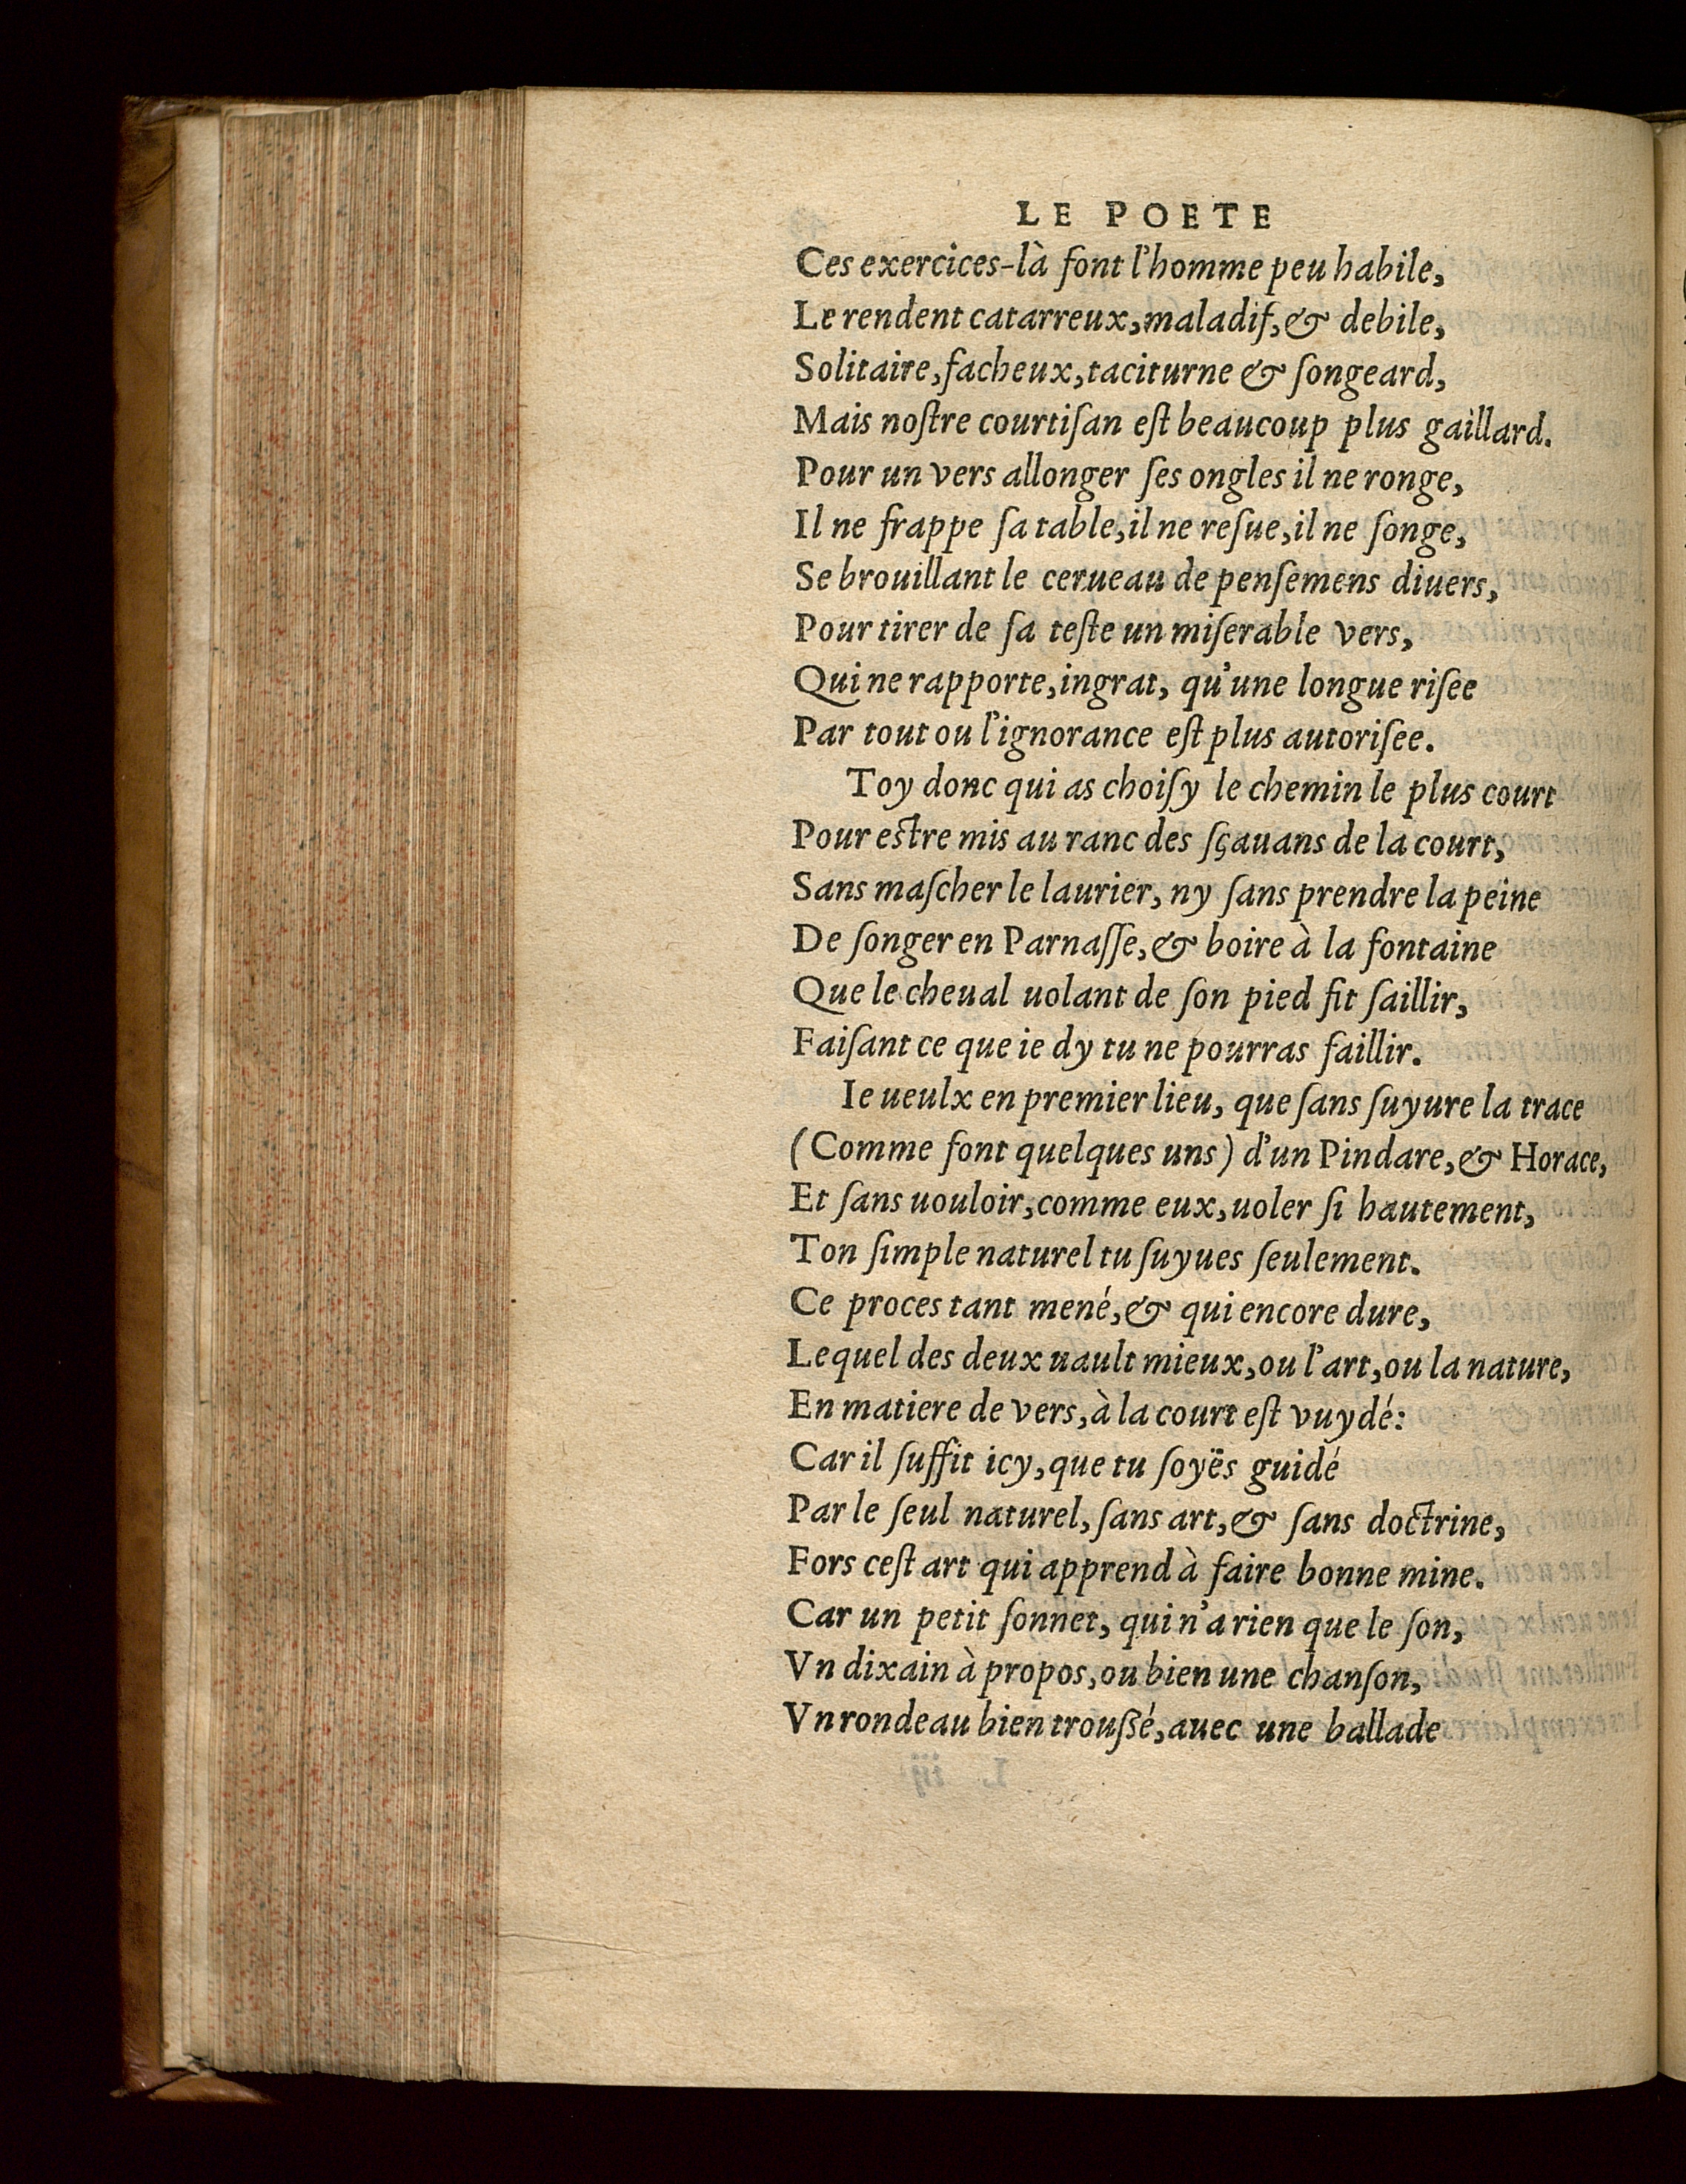 LE POETE
Ces exercices-là font l'homme peu habile,
Le rendent catarreux, maladif, & debile,
Solitaire, facheux, taciturne & ſongeard,
Mais noſtre courtiſan eſt beaucoup plus gaillard.
Pour un vers allonger ſes ongles il ne ronge,
Il ne frappe ſa table, il ne reſue, il ne ſonge,
Se brouillant le cerueau de penſemens diuers,
Pour tirer de ſa teſte un miſerable vers,
Qui ne rapporte, ingrat, qu'une longue riſee
Par tout ou l'ignorance eſt plus autoriſee.
Toy donc qui as choiſy le chemin le plus court
Pour eſtre mis au ranc des ſçauans de la court,
Sans maſcher le laurier, ny ſans prendre la peine
De ſonger en Parnaſſe, & boire à la fontaine
Que le cheual uolant de ſon pied fit ſaillir,
Faiſant ce que ie dy tu ne pourras faillir.
Ie ueulx en premier lieu, que ſans ſuyure la trace
(Comme font quelques uns) d'un Pindare, & Horace,
Et ſans uouloir, comme eux, uoler ſi hautement,
Ton ſimple naturel tu ſuyues ſeulement.
Ce proces tant mené, & qui encore dure,
Lequel des deux uault mieux, ou l'art, ou la nature,
En matiere de vers, à la court eſt vuydé:
Car il ſuffit icy, que tu ſoyës guidé
Par le ſeul naturel, ſans art, & ſans doctrine,
Fors ceſt art qui apprend à faire bonne mine.
Car un petit ſonnet, qui n'a rien que le ſon,
Vn dixain à propos, ou bien une chanſon,
Vn rondeau bien trouſſé, auec une ballade